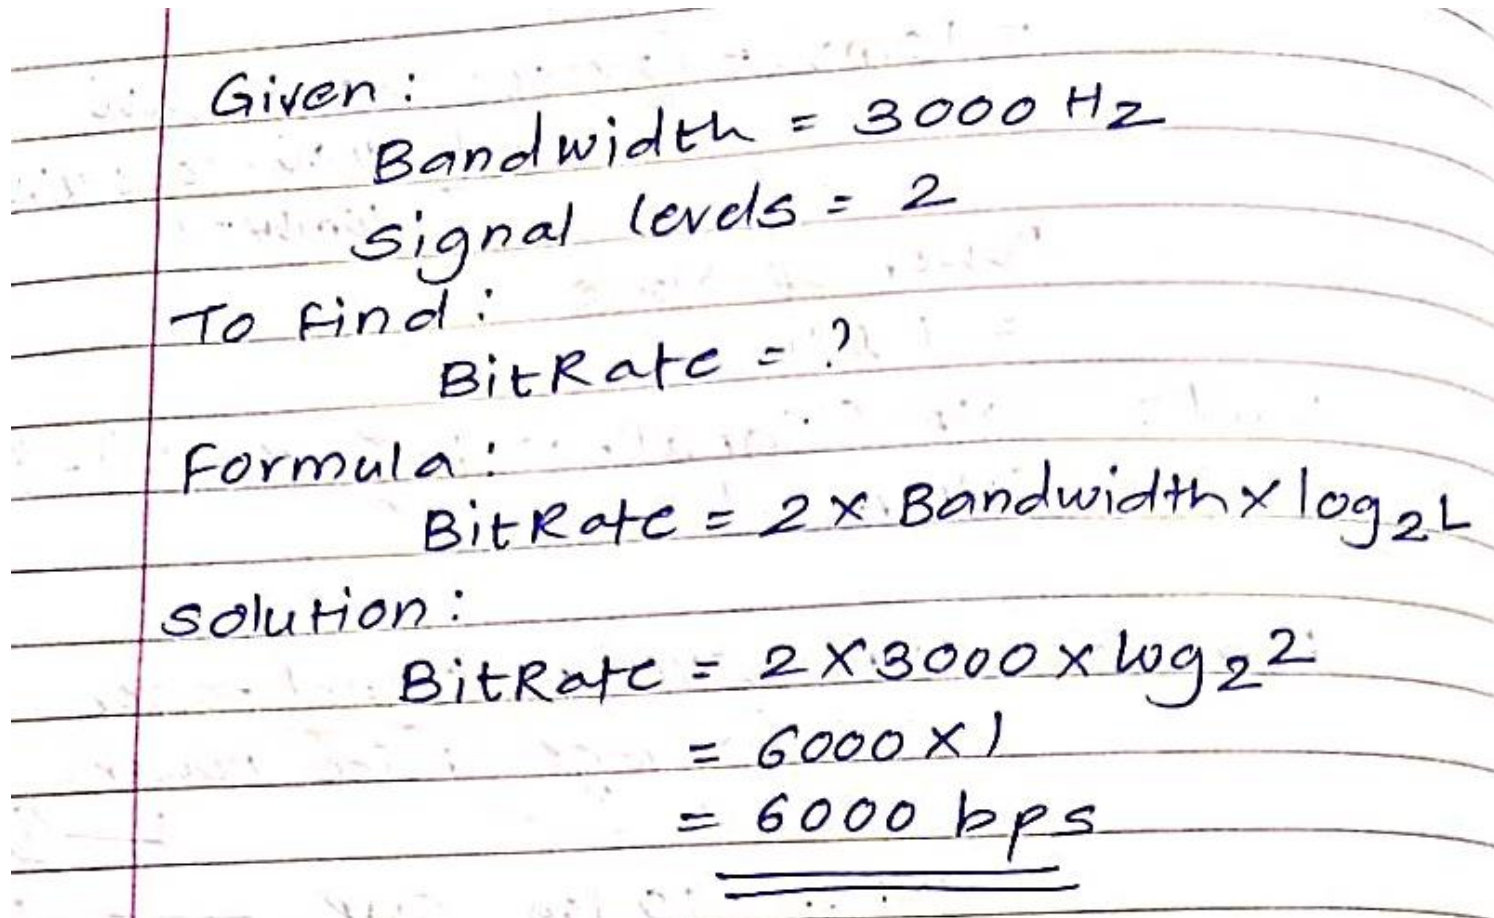 Given :
Bandwidth = 3000 Hz
Signal levels = 2
To find :
BitRate = ?
Formula :
BitRate = 2 × Bandwidth × log₂L
Solution :
BitRate = 2 × 3000 × log₂2
= 6000 × 1
= 6000 bps